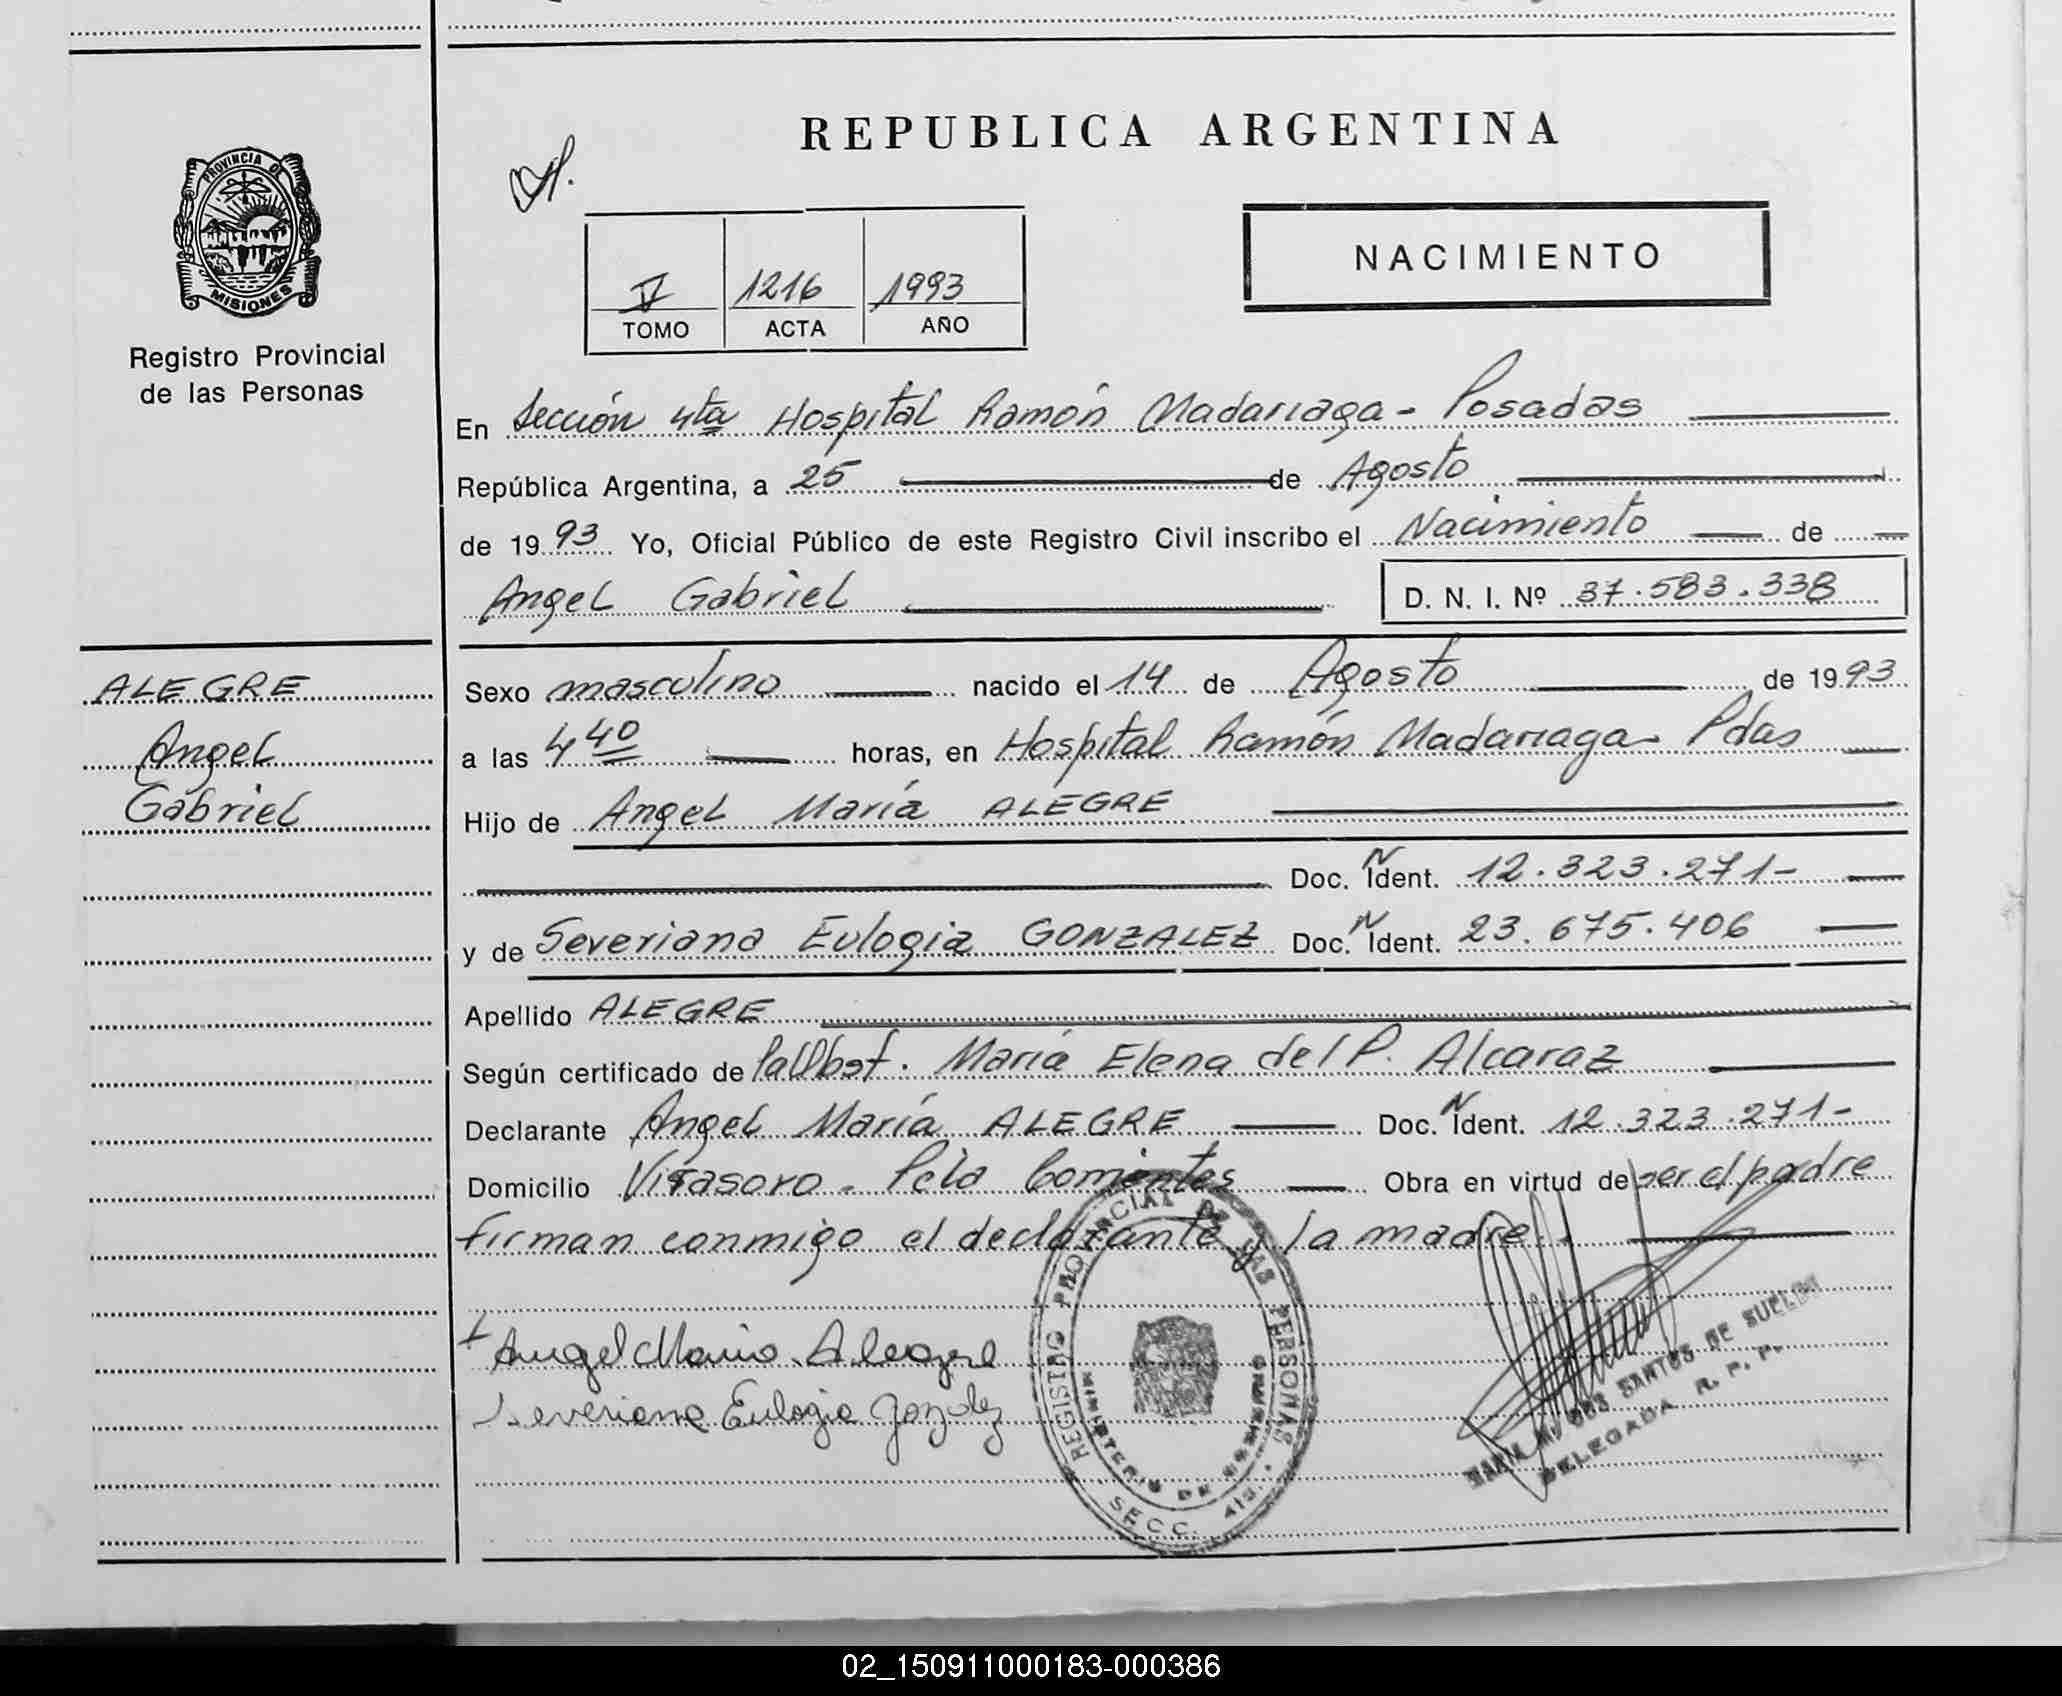 REPUBLICA ARGENTINA
PROVINCIA DE
MISIONES
Registro Provincial
de las Personas
NACIMIENTO
V 1216 1993
TOMO ACTA AÑO
En Sección 4ta Hospital Ramón Madariaga - Posadas
República Argentina, a 25 de Agosto
de 1993 Yo, Oficial Público de este Registro Civil inscribo el Nacimiento de
Angel Gabriel D. N. I. Nº 37.583.338
ALEGRE
Angel
Gabriel
Sexo masculino nacido el 14 de Agosto de 1993
a las 4 40 horas, en Hospital Ramón Madariaga - Pdas
Hijo de Angel María ALEGRE
Doc. N Ident. 12.323.271-
y de Severiana Eulogia GONZALEZ Doc. N Ident. 23.675.406
Apellido ALEGRE
Según certificado de María Elena del P. Alcaraz
Declarante Angel María ALEGRE Doc. N Ident. 12.323.271-
Domicilio Virasoro - Pcia Corrientes Obra en virtud de ser el padre
firman conmigo el declarante y la madre.
Angel Maria Alegre
Severiana Eulogia Gonzalez
REGISTRO PROVINCIAL DE LAS PERSONAS
MINISTERIO DE GOBIERNO
SECC. 4ta.
DOS SANTOS DE SUELDO
DELEGADA R. P. P.
02_150911000183-000386